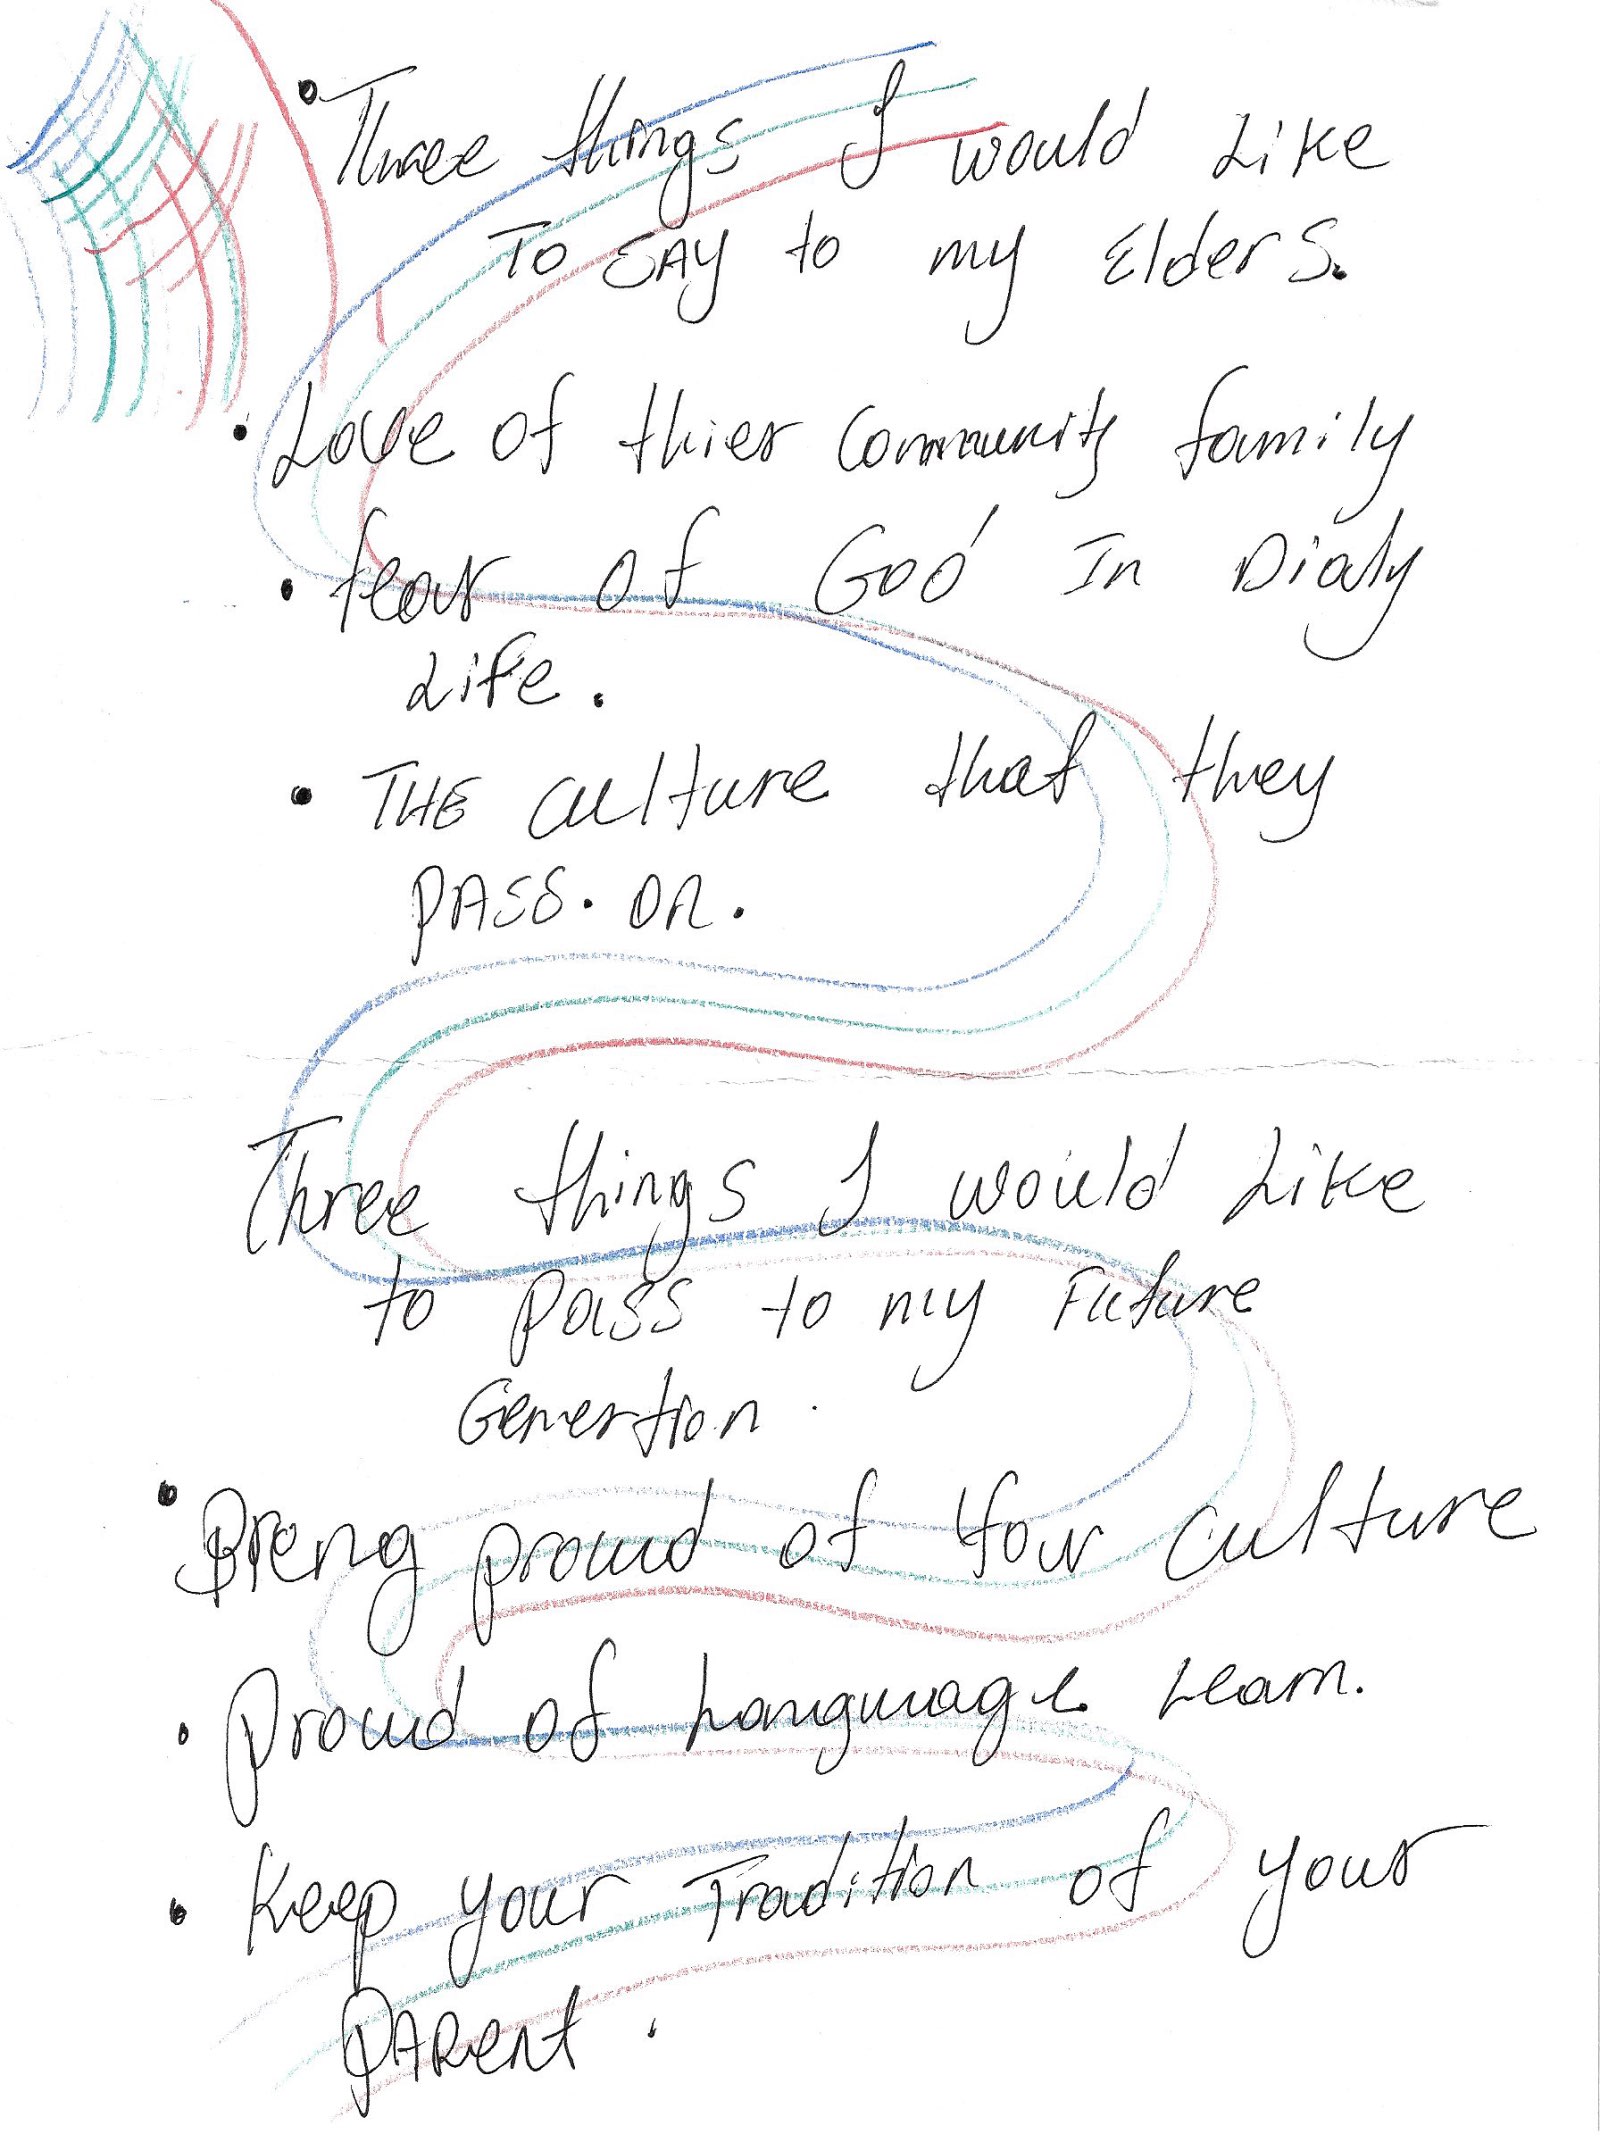 • Three things I would Like
To SAY to my Elders.
• Love of thier Community family
• fear of God In Dialy
Life.
• THE culture that they
PASS. on.
Three things I would Like
to pass to my Future
Genertion.
• Bieng proud of Your culture
• Proud of Language Learn.
• Keep your Tradition of your
PARent.